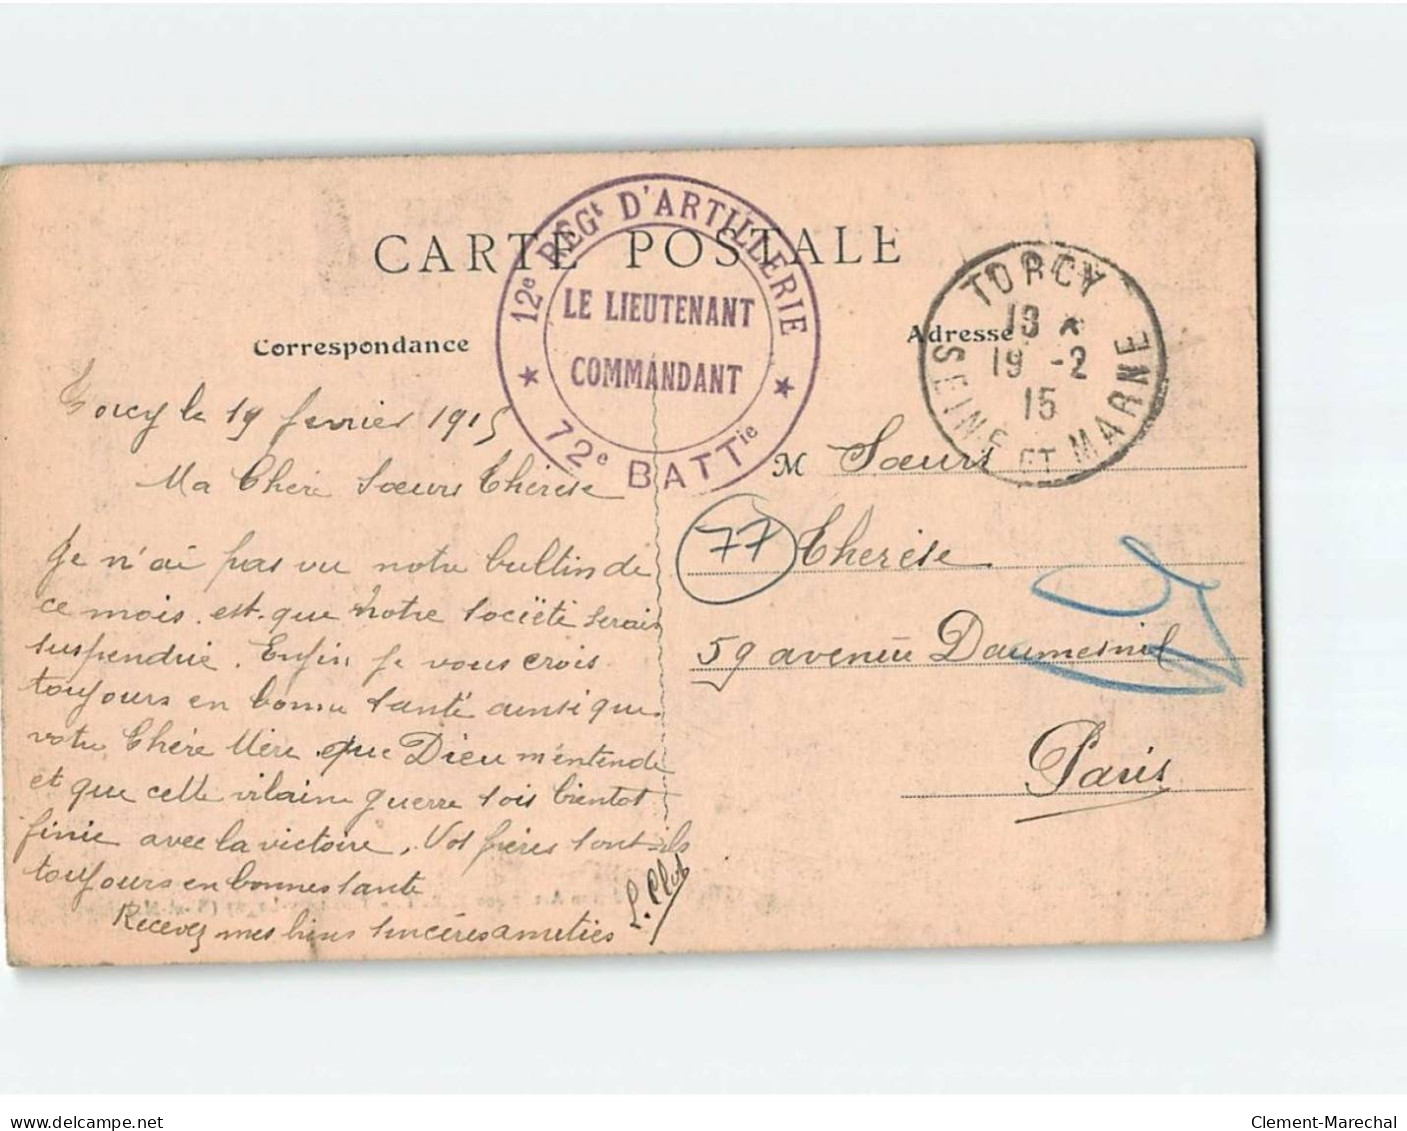 CARTE POSTALE
12e RÉGt D'ARTILLERIE
LE LIEUTENANT
COMMANDANT
72e BATTie
TORCY
19 -2
15
SEINE ET MARNE
Correspondance
Adresse
Torcy le 19 fevrier 1915
Ma Chère Sœurs Thérèse
Je n'ai pas vu notre bultin de
ce mois. est-que notre société serais
suspendue. Enfin je vous crois
toujours en bonne santé ainsi que
votre Chère Mère que Dieu m'entende
et que cette vilaine guerre sois bientot
finie avec la victoire. Vos frères sont-ils
toujours en bonne sante
Recevez mes biens sincères amitiés
M Sœurs
77
Therèse
59 avenue Daumesnil
Paris
delcampe.net
Clement-Marechal